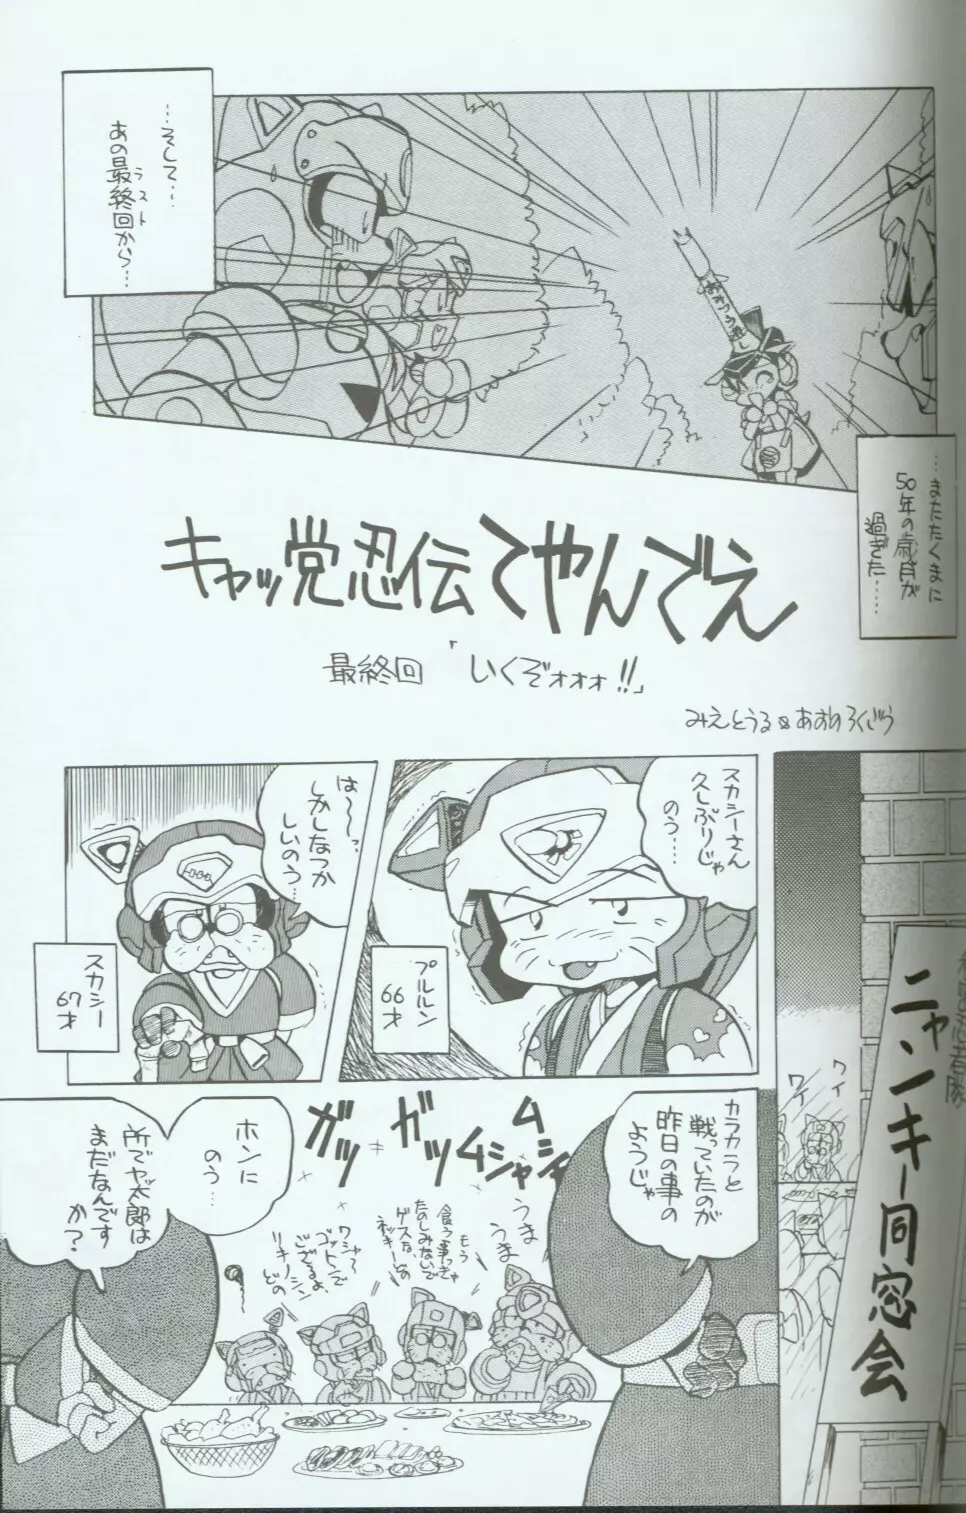 …そして…
あの最終回から…
ラスト
おかつう通し
…またたくまに
50年の歳月が
過ぎた……
キャッ党忍伝てやんでえ
最終回 「いくぞォォォ!!」
みえとうる&あおのろくごう
ニャンキー同窓会
ワイ
ワイ
スカシーさん
久しぶりじゃ
のう…
プルルン
66才
は～～っ
しかしなつか
しいのう…
スカシー
67才
カラカラと
戦っていたのが
昨日の事の
ようじゃ
ムシャムシャ
ガツ
ガツ
うま
うま
もう
食う事っきゃ
たのしみないで
ゲスな、の
ネッキー
ワシャ～
ゴットンで
ござるよ、
リキノーシン
どの
ホンに
のう…
所でヤッ太郎は
まだなんです
か?